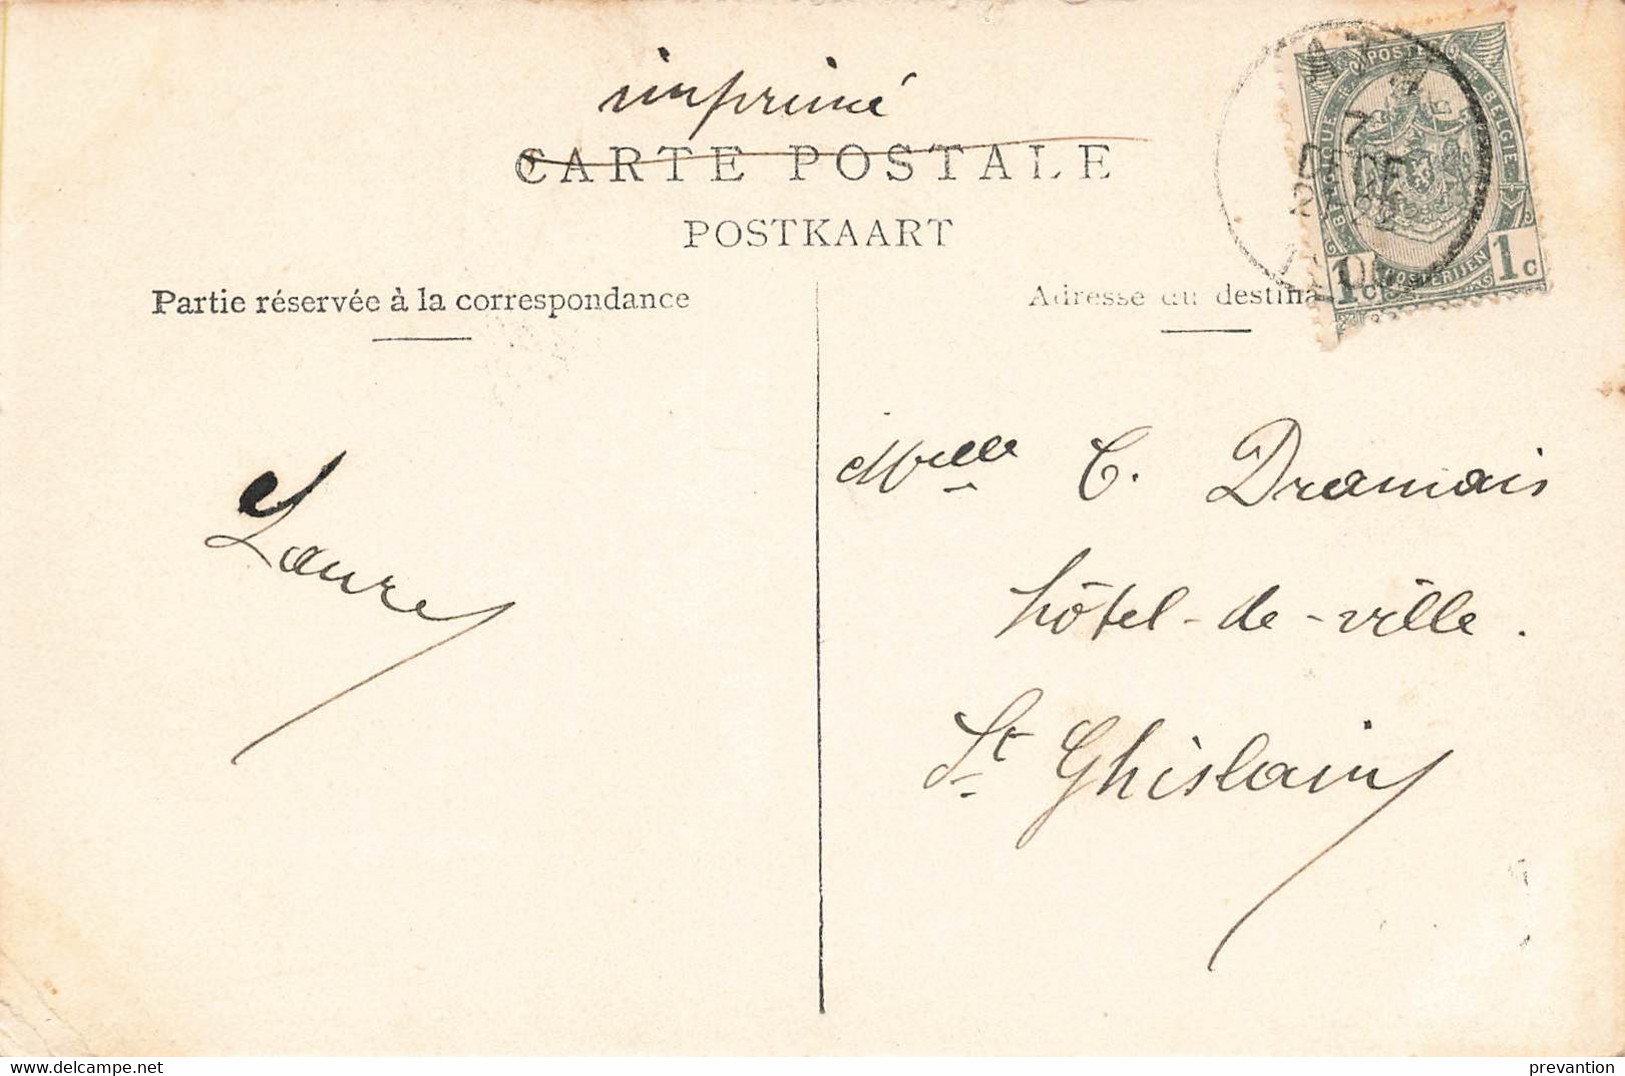 imprimé
CARTE POSTALE
POSTKAART
Partie réservée à la correspondance
Adresse du destina
POSTES
BELGIE
BELGIQUE
1c
1c
7
DEC
Mlle C. Dramais
hôtel-de-ville.
St Ghislain
Laure
prevantion